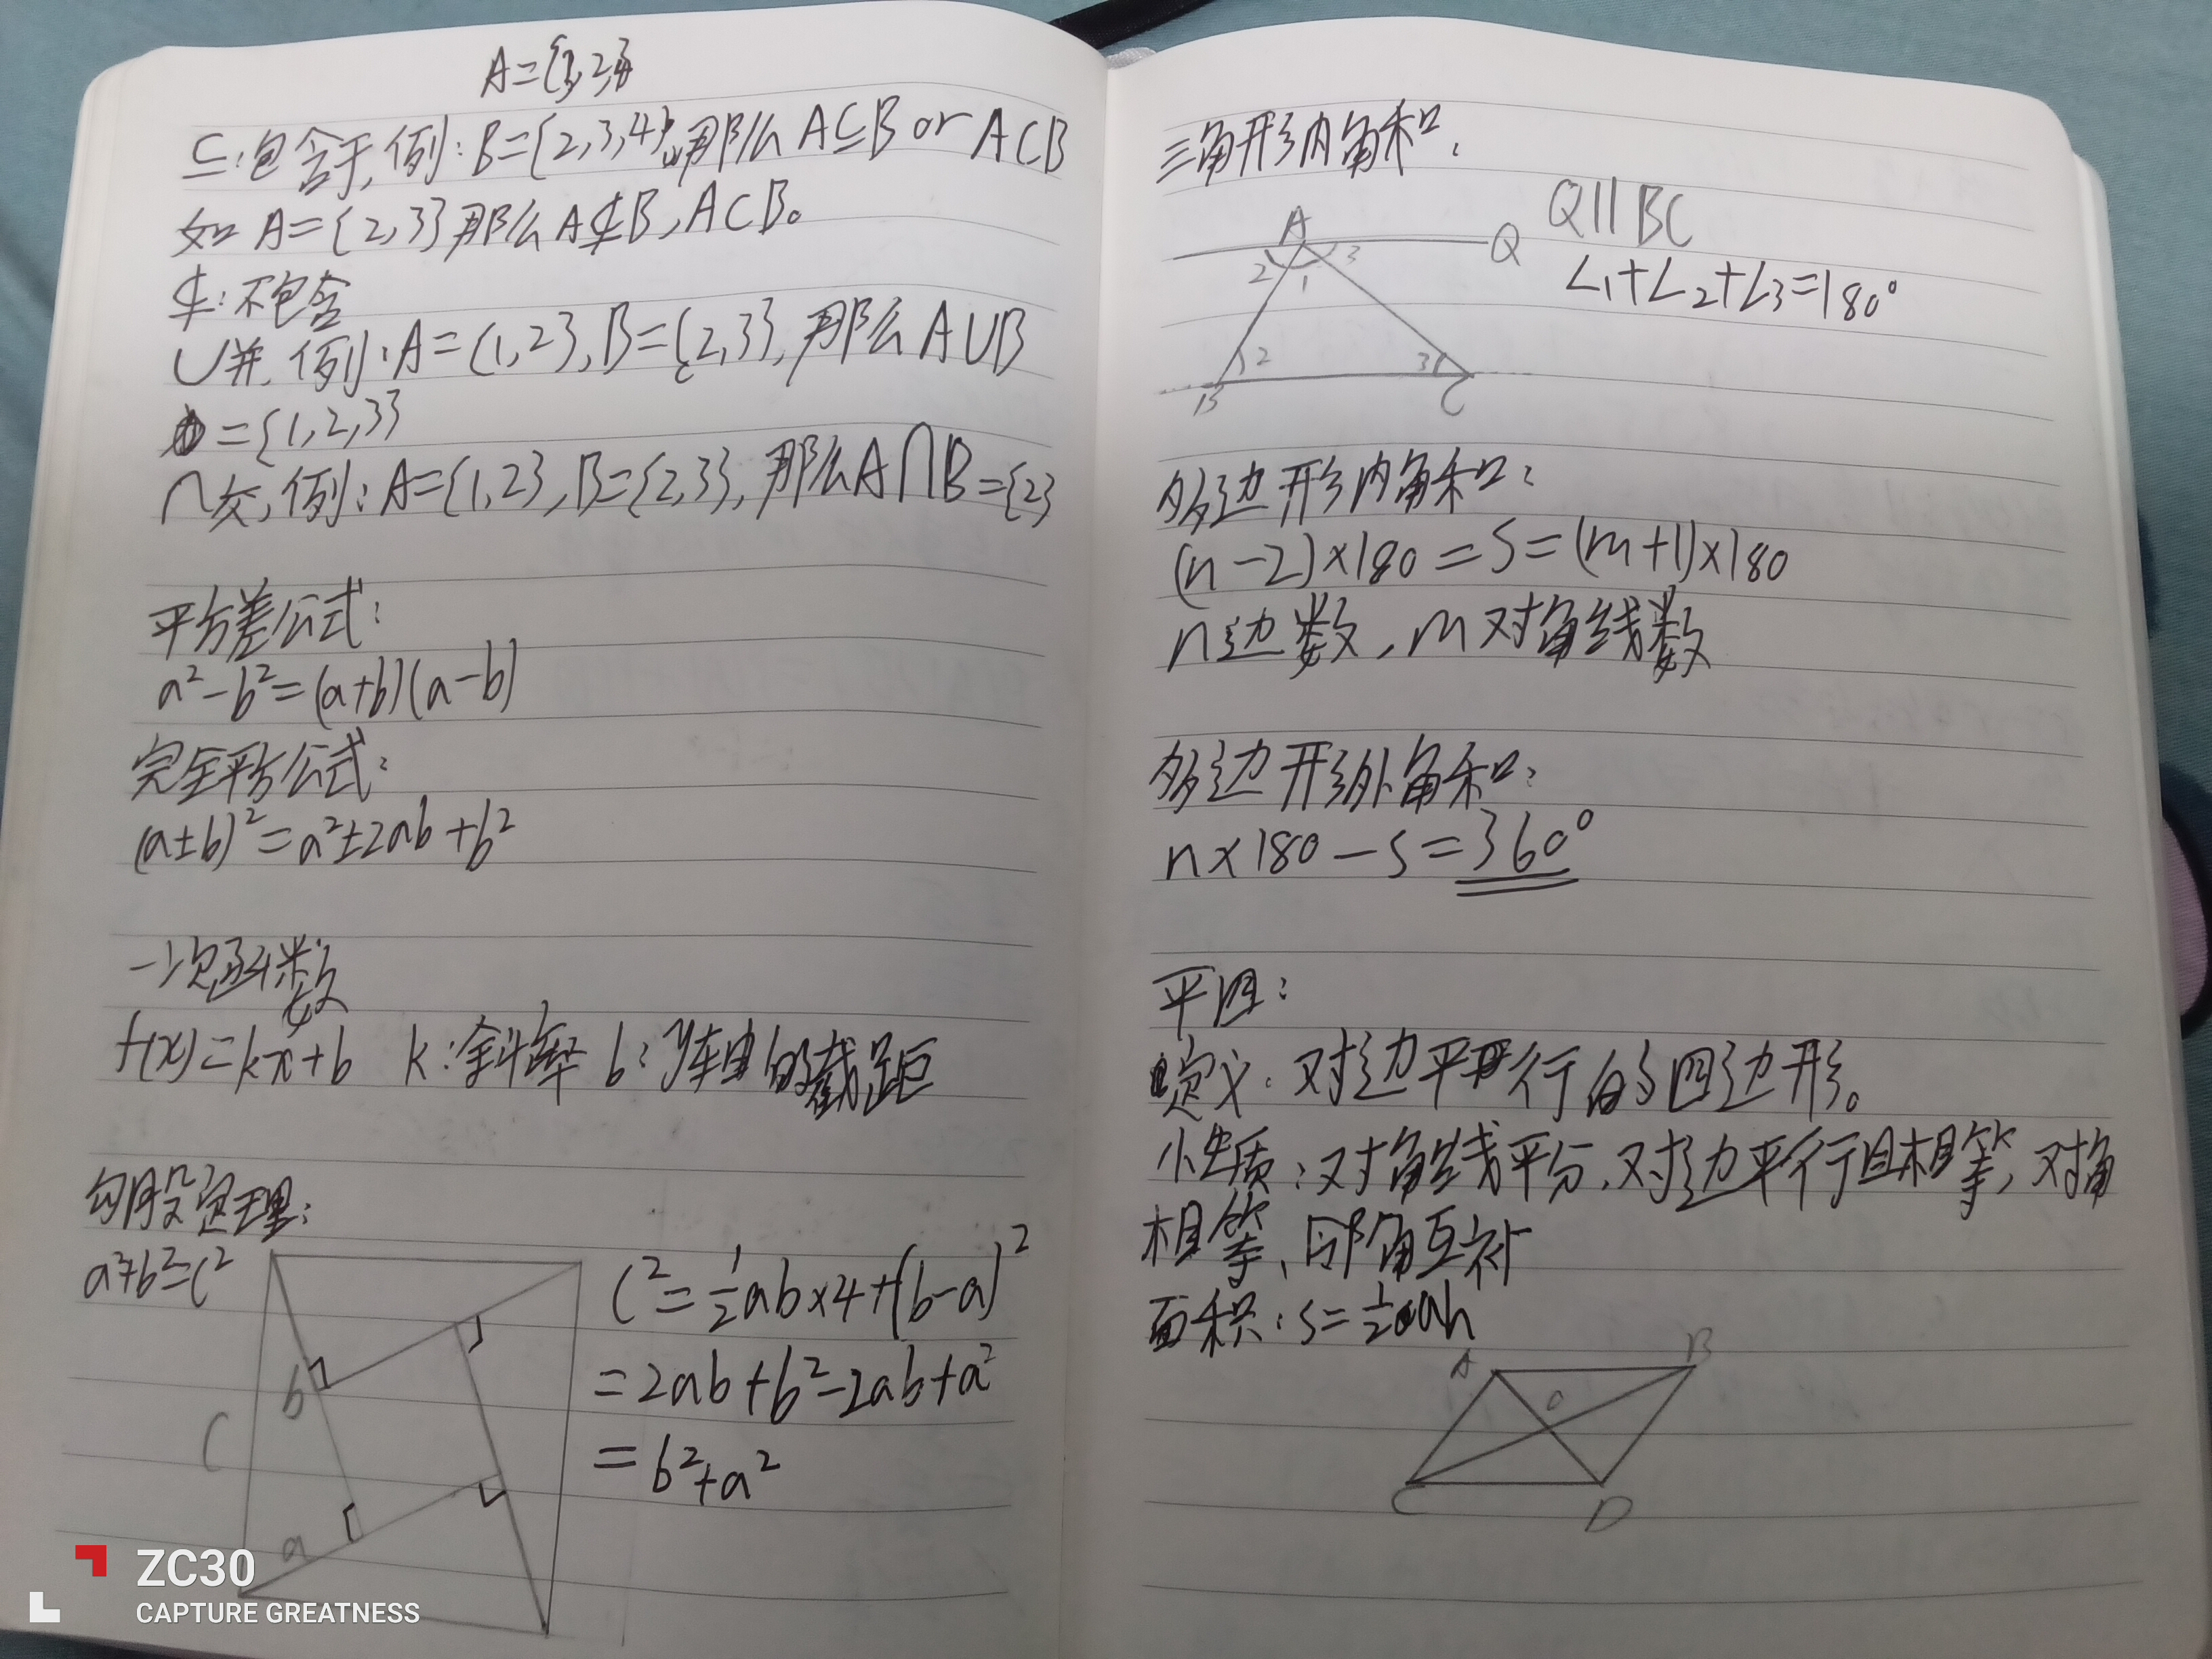 A={1,2,3}
⊆:包含于,例:B={2,3,4},那么A⊆B or A⊂B
如A={2,3}那么A⊄B,A⊂B。
⊄:不包含
∪并,例:A={1,2},B={2,3},那么A∪B
={1,2,3}
∩交,例:A={1,2},B={2,3},那么A∩B={2}
平方差公式:
a²-b²=(a+b)(a-b)
完全平方公式:
(a±b)²=a²±2ab+b²
一次函数
f(x)=kx+b k:斜率 b:y轴的截距
勾股定理:
a²+b²=c²
C²=½ab×4+(b-a)²
=2ab+b²-2ab+a²
=b²+a²
b
C
a
三角形内角和:
A
Q
Q∥BC
2 1 3
∠1+∠2+∠3=180°
2 3
B C
多边形内角和:
(n-2)×180=S=(m+1)×180
n边数,m对角线数
多边形外角和:
n×180-S=360°
平四:
定义:对边平行的四边形。
性质:对角线平分、对边平行且相等、对角
相等、邻角互补
面积:S=½ah
A B
O
C D
ZC30
CAPTURE GREATNESS